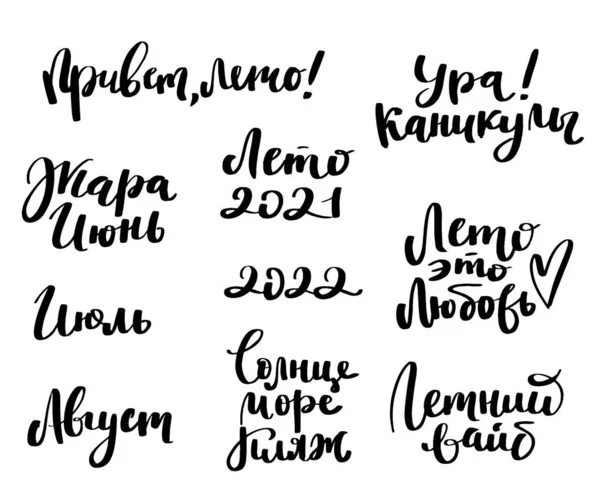 Привет, лето!
Ура!
Каникулы
Жара
Июнь
Лето
2021
Лето
это
Любовь
2022
Июль
Солнце
море
пляж
Август
Летний
вайб